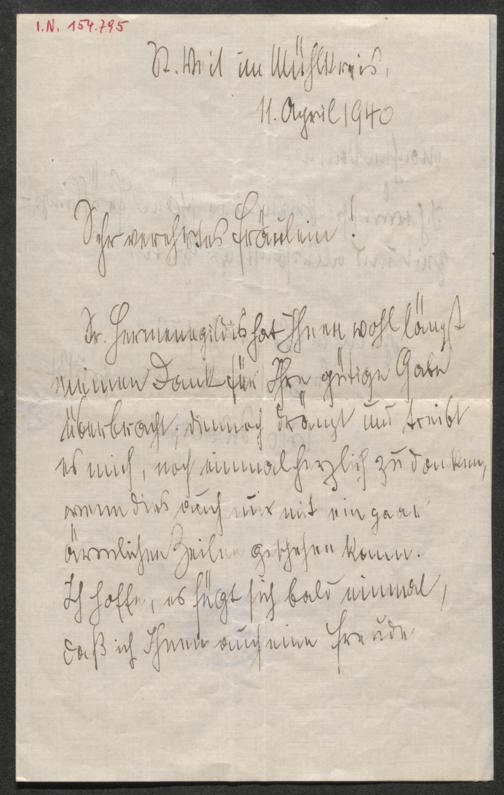 I.N. 154.795
St. Veit im Mühlkreis,
11. April 1940
Sehr verehrtes Fräulein!
Sr. Hermenegildis hat Ihnen wohl längst
meinen Dank für Ihre gütige Gabe
überbracht, dennoch drängt und treibt
es mich, noch einmal herzlich zu danken,
wenn dies auch nur mit ein paar
ärmlichen Zeilen geschehen kann.
Ich hoffe, es fügt sich bald einmal,
daß ich Ihnen auch eine Freude